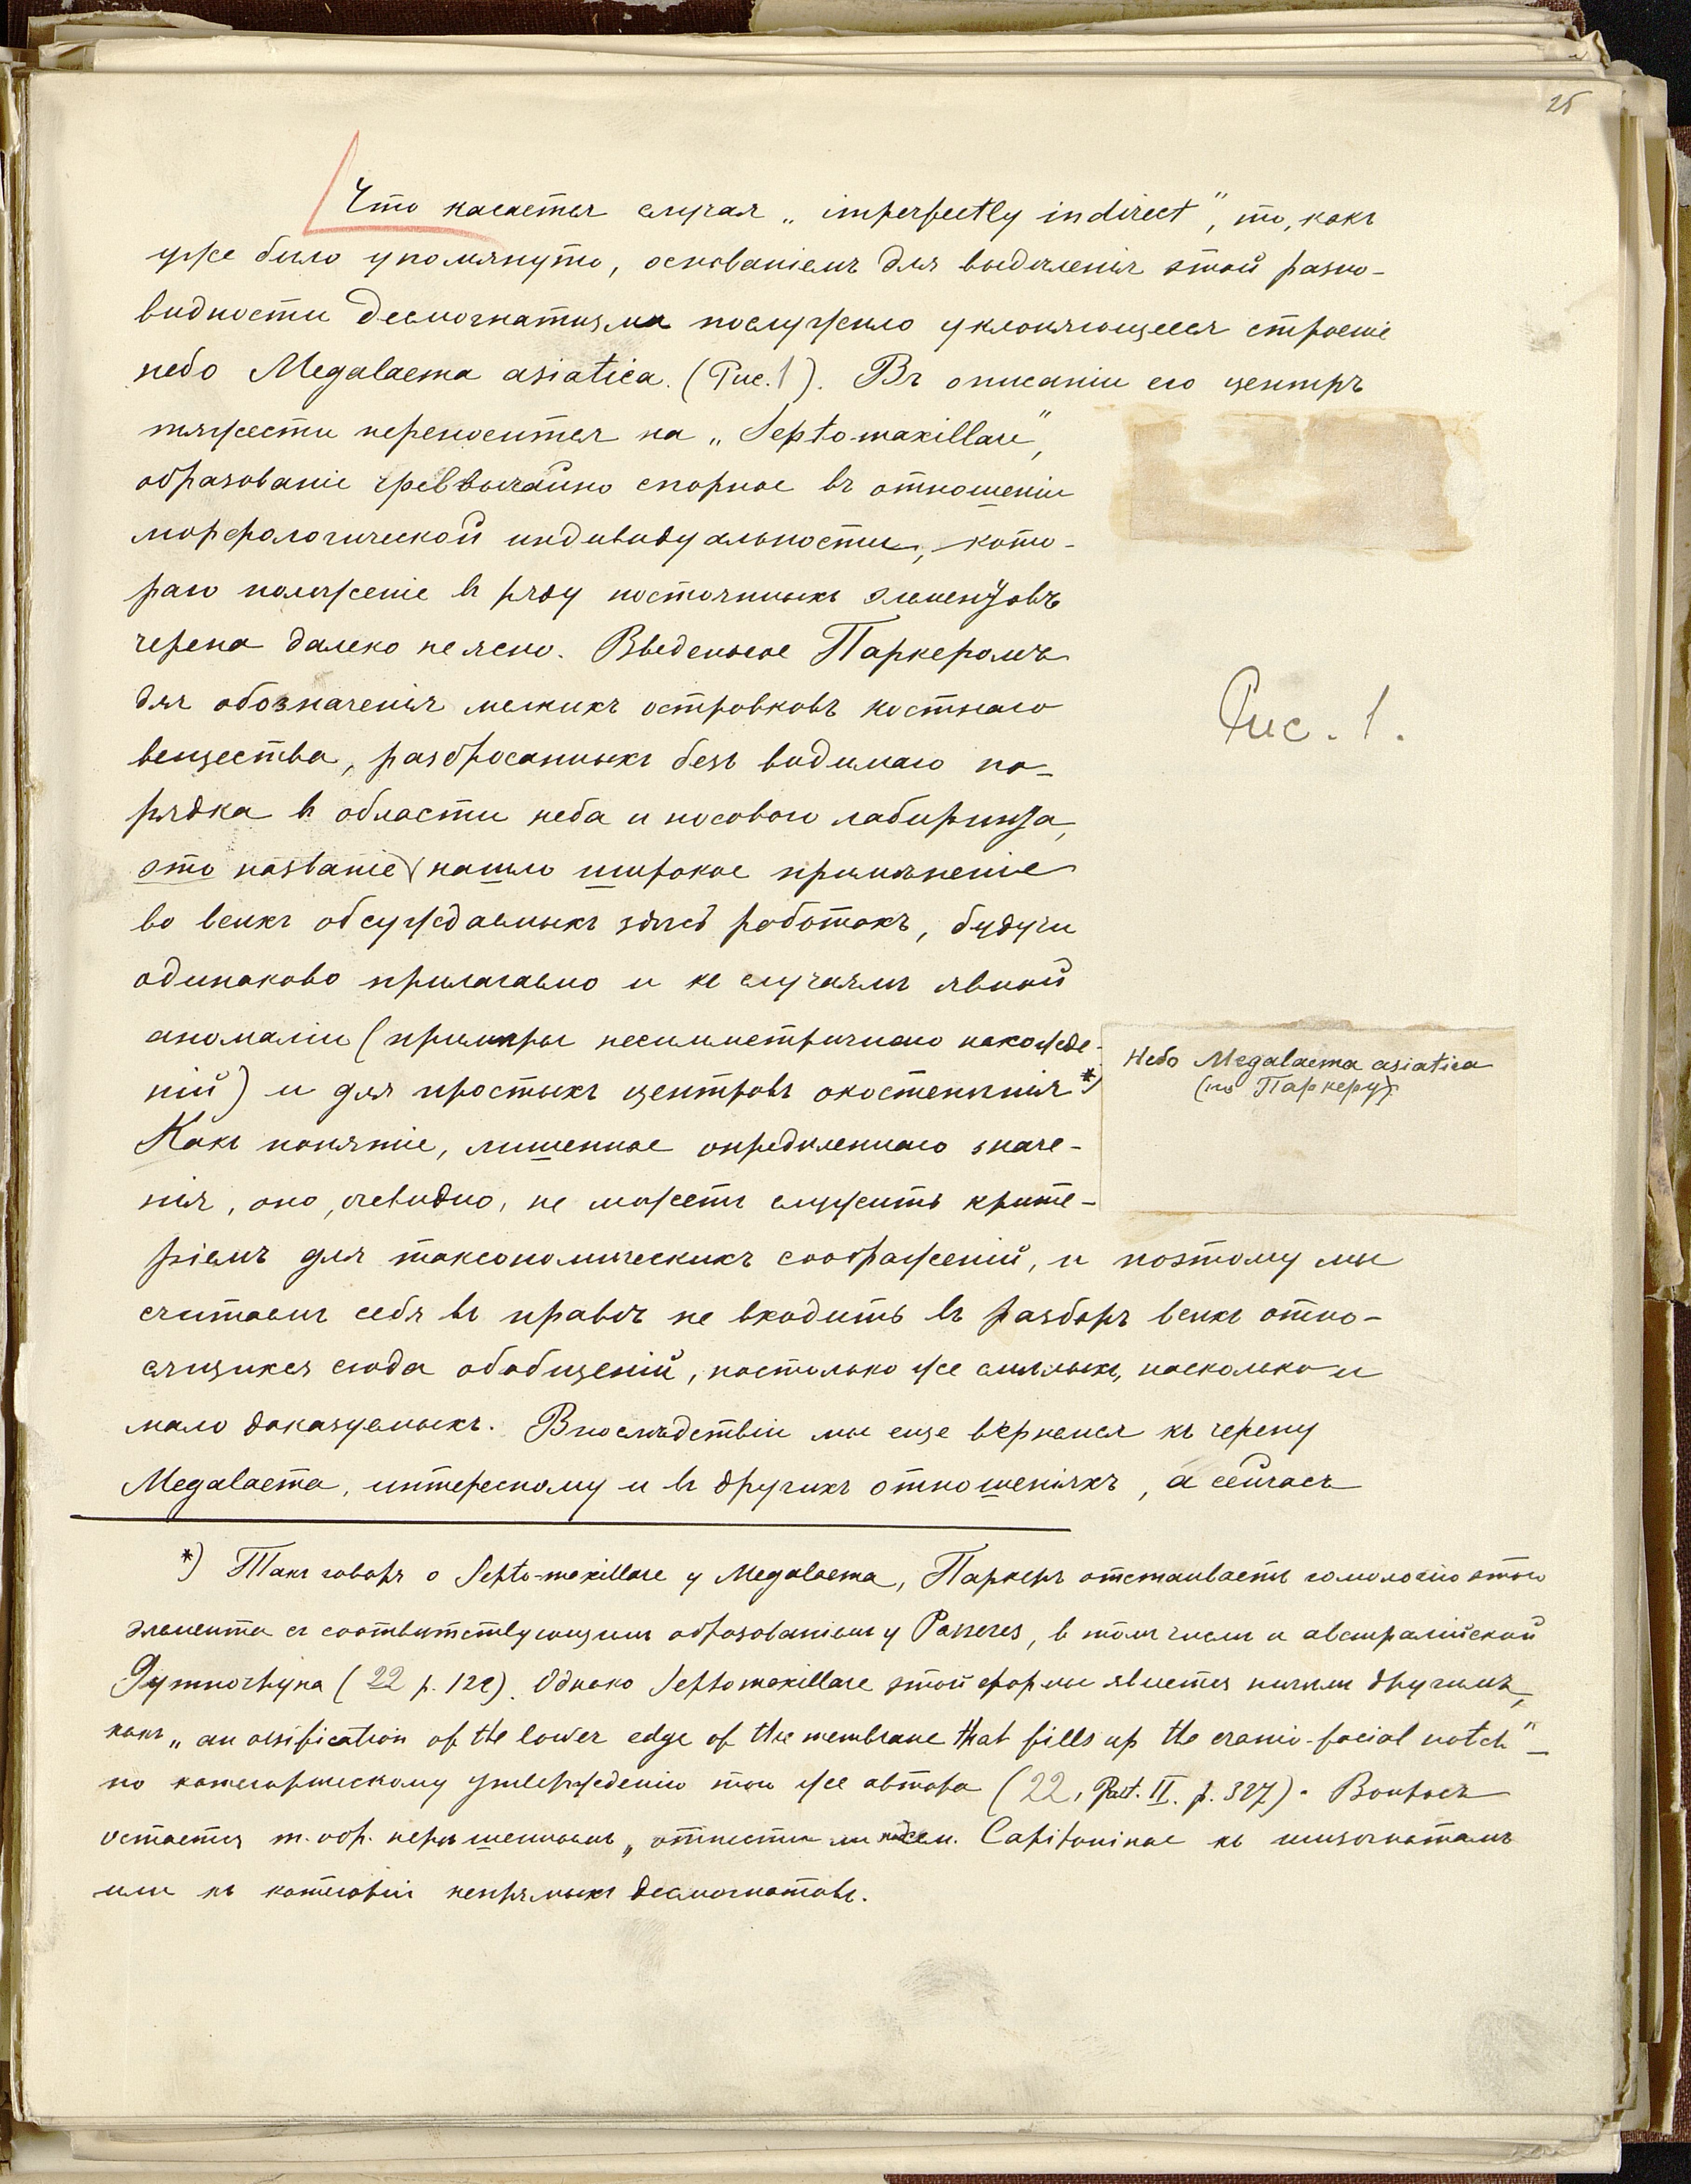 25
Что касается случая „imperfectly indirect", то, какъ
уже было упомянуто, основаніемъ для выдѣленія этой разно-
видности десмогнатизма послужило уклоняющееся строеніе
небо Megalaema asiatica. (Рис. 1). Въ описаніи его центръ
тяжести переносится на „Septo-maxillare",
образованіе чрезвычайно спорное въ отношеніи
морфологической индивидуальности, кото-
раго положеніе въ ряду постоянныхъ элементовъ
черепа далеко не ясно. Введенное Паркеромъ
для обозначенія мелкихъ островковъ костнаго
вещества, разбросанныхъ безъ видимаго по-
рядка въ области неба и носового лабиринта,
это названіе нашло широкое примѣненіе
во всѣхъ обсуждаемыхъ здѣсь работахъ, будучи
одинаково прилагаемо и къ случаямъ явной
аномаліи (примѣры несимметричнаго нахожде-
ній) и для простыхъ центровъ окостенѣнія *)
Какъ понятіе, лишенное опредѣленнаго значе-
нія, оно, очевидно, не можетъ служить крите-
ріемъ для таксономическихъ соображеній, и поэтому мы
считаемъ себя въ правѣ не входить въ разборъ всѣхъ отно-
сящихся сюда обобщеній, настолько же смѣлыхъ, насколько и
мало доказуемыхъ. Впослѣдствіи мы еще вернемся къ черепу
Megalaema, интересному и въ другихъ отношеніяхъ, а сейчасъ
Рис. 1.
Небо Megalaema asiatica
(по Паркеру).
*) Такъ говоря о Septo-maxillare у Megalaema, Паркеръ отстаиваетъ гомологію этого
элемента съ соотвѣтствующимъ образованіемъ у Passeres, въ томъ числѣ и австралійской
Gymnorhyna (22 p. 122). Однако Septomaxillare этой формы является ничѣмъ другимъ,
какъ „an ossification of the lower edge of the membrane that fills up the cranio-facial notch" —
по категорическому утвержденію того же автора (22, Part. II. p. 327). Вопросъ
остается т. обр. нерѣшеннымъ, отнести ли подсем. Capitoninae къ шизогнатамъ
или къ категоріи непрямыхъ десмогнатовъ.